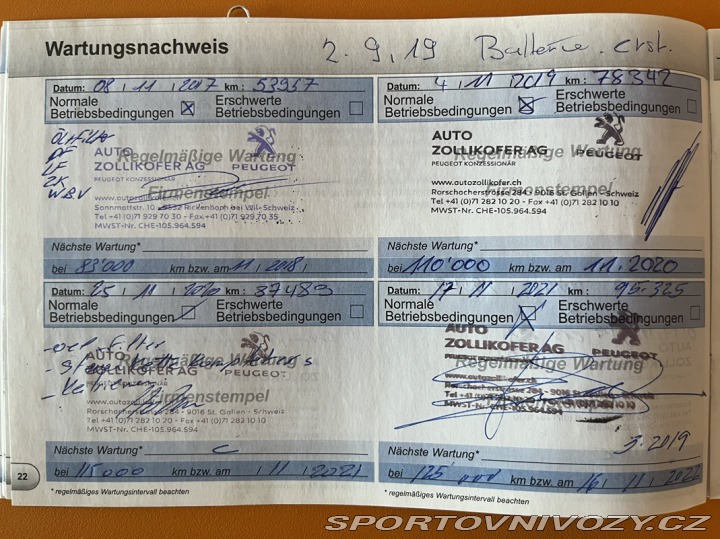 Wartungsnachweis 2.9.19 Batterie
Datum: 08 | 11 | 2017 km: 53957
Normale Betriebsbedingungen ☒ Erschwerte Betriebsbedingungen ☐
Ölfilter
LF
ZK
AUTO
ZOLLIKOFER AG
PEUGEOT KONZESSIONÄR
PEUGEOT
Regelmäßige Wartung
Firmenstempel
www.autozollikofer.ch
Sonnmattstr. 10 - 9532 Rickenbach bei Wil-Schweiz
Tel +41 (0)71 929 70 30 - Fax +41 (0)71 929 70 35
MWST-Nr. CHE-105.964.594
Nächste Wartung*
bei 83'000 km bzw. am 11 | 2018
Datum: 4 | 11 | 2019 km: 78342
Normale Betriebsbedingungen ☒ Erschwerte Betriebsbedingungen ☐
AUTO
ZOLLIKOFER AG
PEUGEOT KONZESSIONÄR
PEUGEOT
Regelmäßige Wartung
Firmenstempel
www.autozollikofer.ch
Rorschacherstrasse 284 - 9016 St. Gallen - Schweiz
Tel +41 (0)71 282 10 20 - Fax +41 (0)71 282 10 10
MWST-Nr. CHE-105.964.594
Nächste Wartung*
bei 110'000 km bzw. am 11.2020
Datum: 25 | 11 | 2020 km: 87489
Normale Betriebsbedingungen ☒ Erschwerte Betriebsbedingungen ☐
AUTO
ZOLLIKOFER AG
PEUGEOT
Regelmäßige Wartung
Firmenstempel
www.autozollikofer.ch
Rorschacherstrasse 284 - 9016 St. Gallen - Schweiz
Tel +41 (0)71 282 10 20 - Fax +41 (0)71 282 10 10
MWST-Nr. CHE-105.964.594
Nächste Wartung*
bei 115000 km bzw. am | 11 | 2021
Datum: 17 | 11 | 2021 km: 95325
Normale Betriebsbedingungen ☒ Erschwerte Betriebsbedingungen ☐
AUTO
ZOLLIKOFER AG
PEUGEOT
Regelmäßige Wartung
Firmenstempel
www.autozollikofer.ch
MWST-Nr. CHE-105.964.594
3.2019
Nächste Wartung*
bei 125'000 km bzw. am 16 | 11 | 2022
22
* regelmäßiges Wartungsintervall beachten
* regelmäßiges Wartungsintervall beachten
SPORTOVNIVOZY.CZ